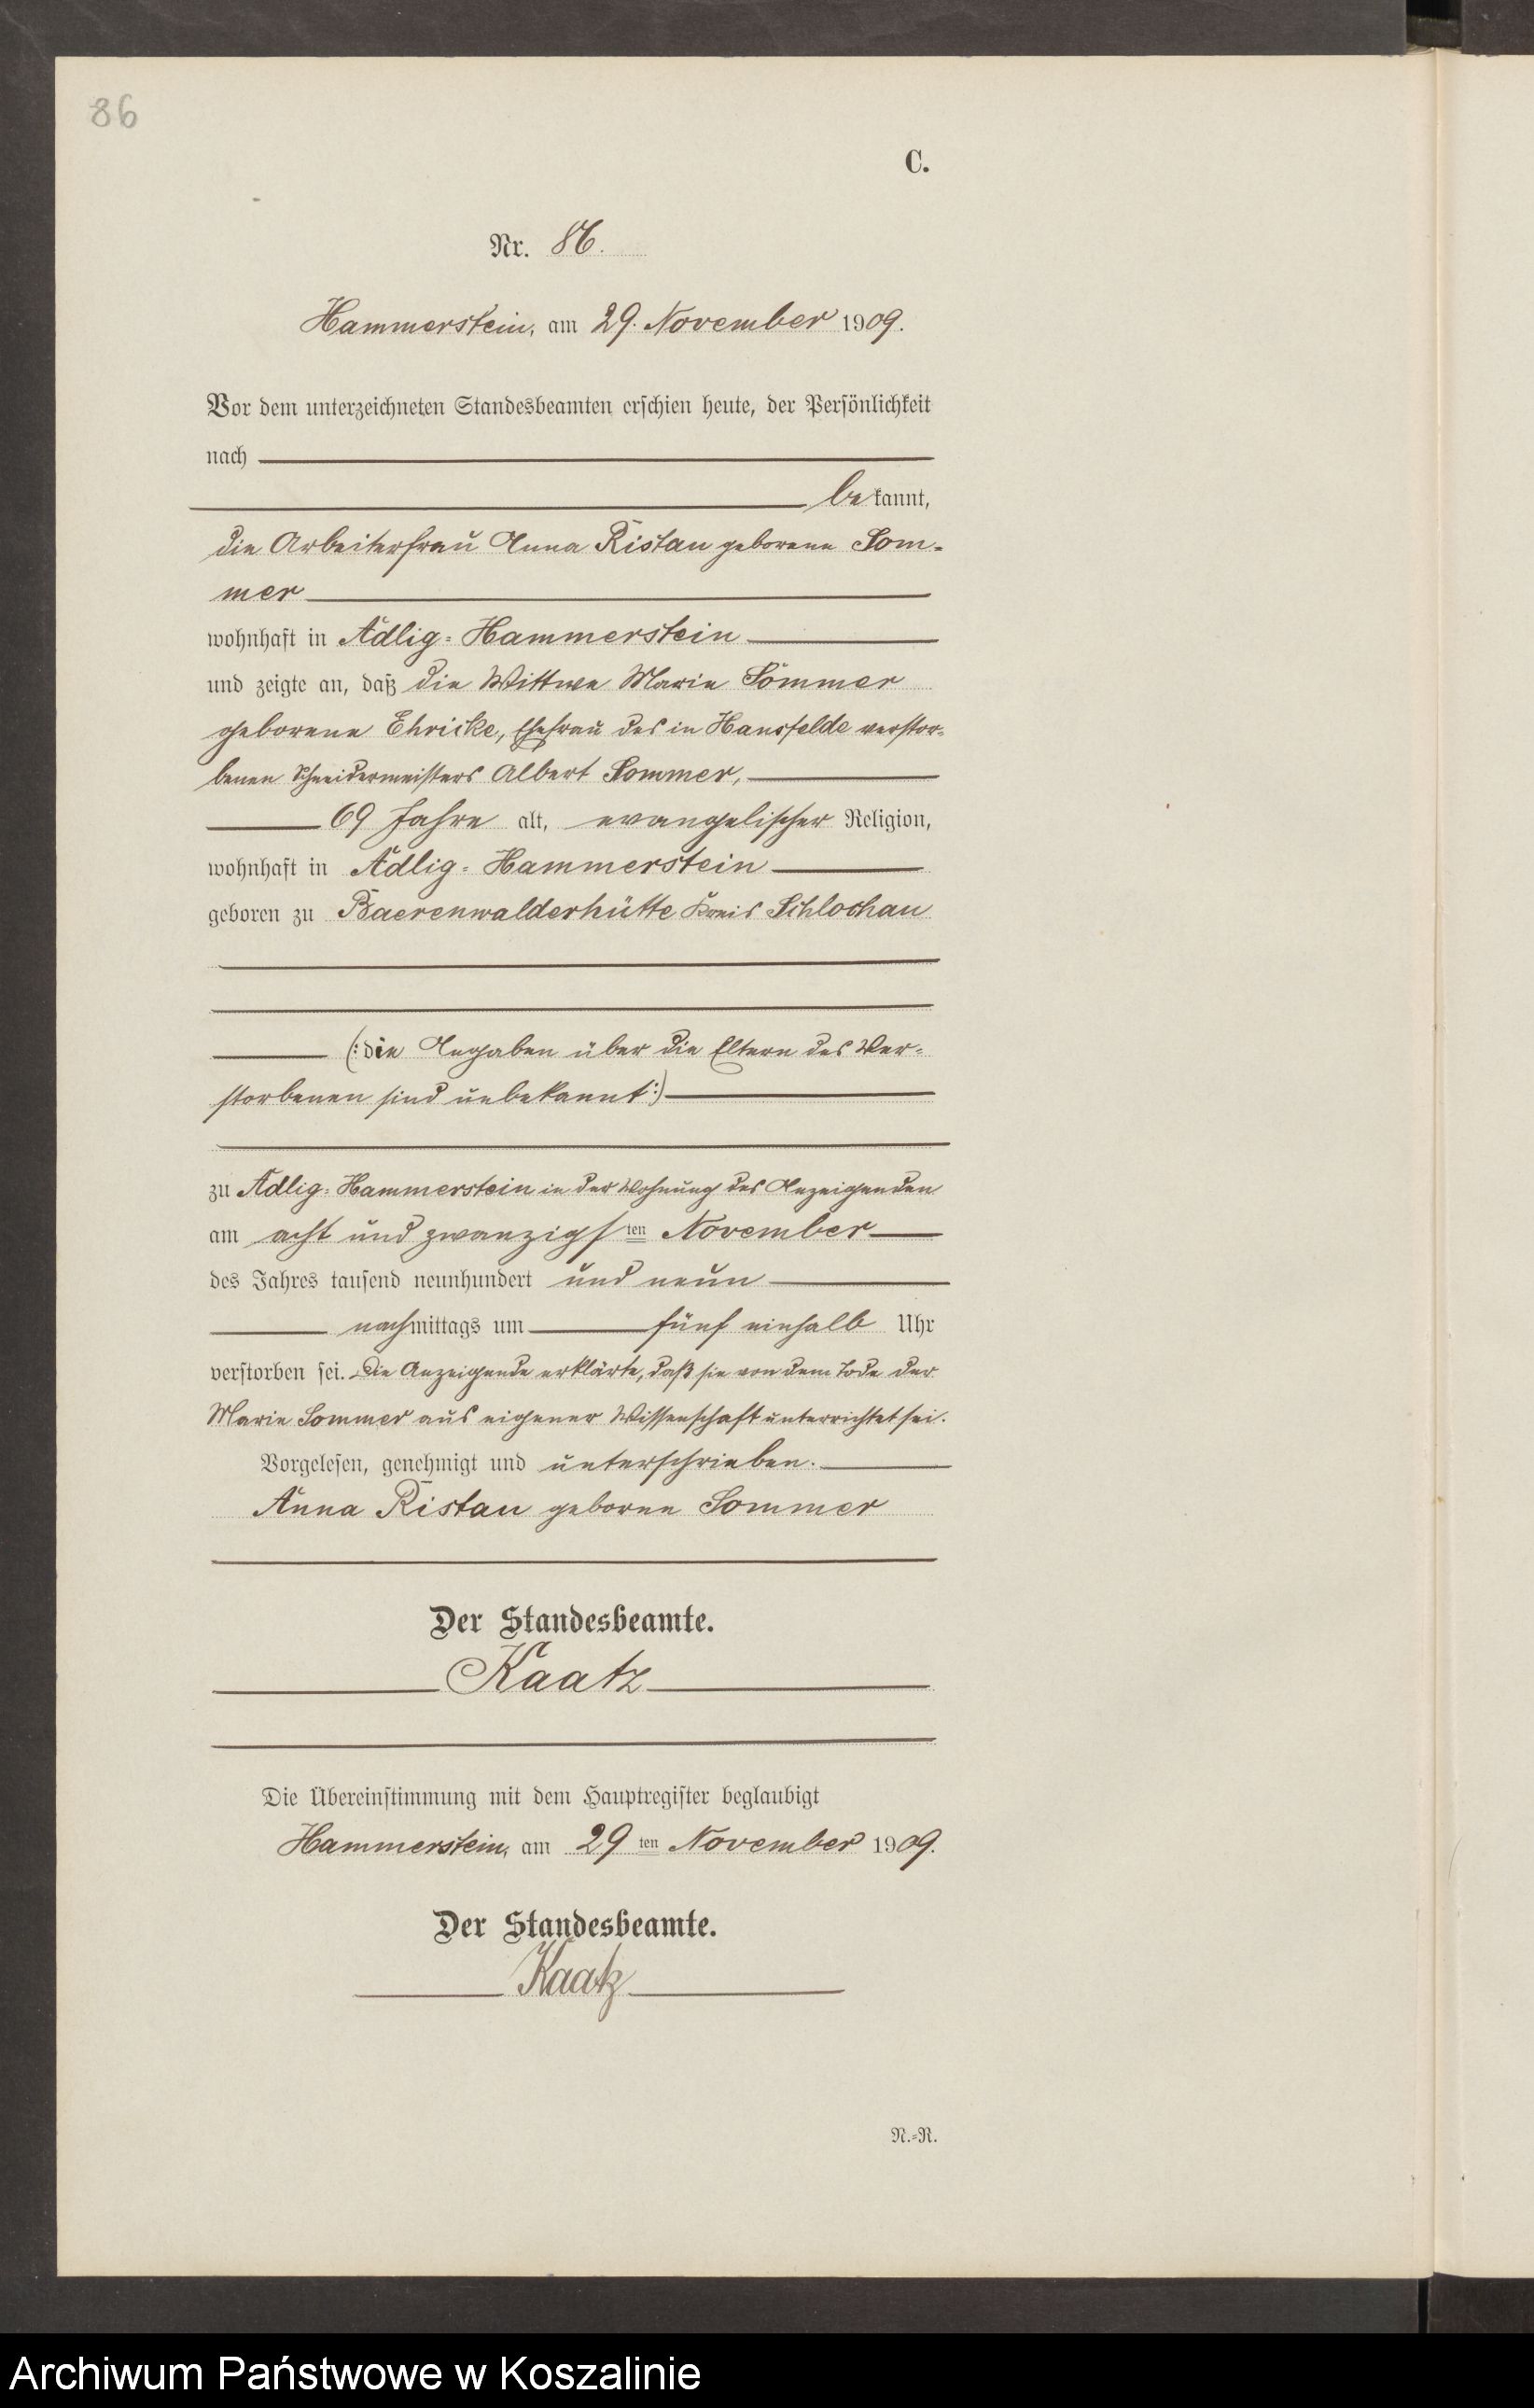 86
C.
Nr. 86.
Hammerstein, am 29. November 1909.
Vor dem unterzeichneten Standesbeamten erschien heute, der Persönlichkeit
nach
bekannt,
die Arbeiterfrau Anna Ristau geborene Som-
mer
wohnhaft in Adlig-Hammerstein
und zeigte an, daß die Wittwe Marie Sommer
geborene Ehricke, Ehefrau des in Hansfelde verstor-
benen Schneidermeisters Albert Sommer,
69 Jahre alt, evangelischer Religion,
wohnhaft in Adlig-Hammerstein
geboren zu Baerenwalderhütte Kreis Schlochau
(: die Angaben über die Eltern des Ver-
storbenen sind unbekannt :)
zu Adlig-Hammerstein in der Wohnung des Anzeigenden
am acht und zwanzigsten November
des Jahres tausend neunhundert und neun
nachmittags um fünf einhalb Uhr
verstorben sei. Die Anzeigende erklärte, daß sie von dem Tode der
Marie Sommer aus eigener Wissenschaft unterrichtet sei.
Vorgelesen, genehmigt und unterschrieben.
Anna Ristau geborne Sommer
Der Standesbeamte.
Kaatz
Die Übereinstimmung mit dem Hauptregister beglaubigt
Hammerstein, am 29ten November 1909.
Der Standesbeamte.
Kaatz
N.-R.
Archiwum Państwowe w Koszalinie